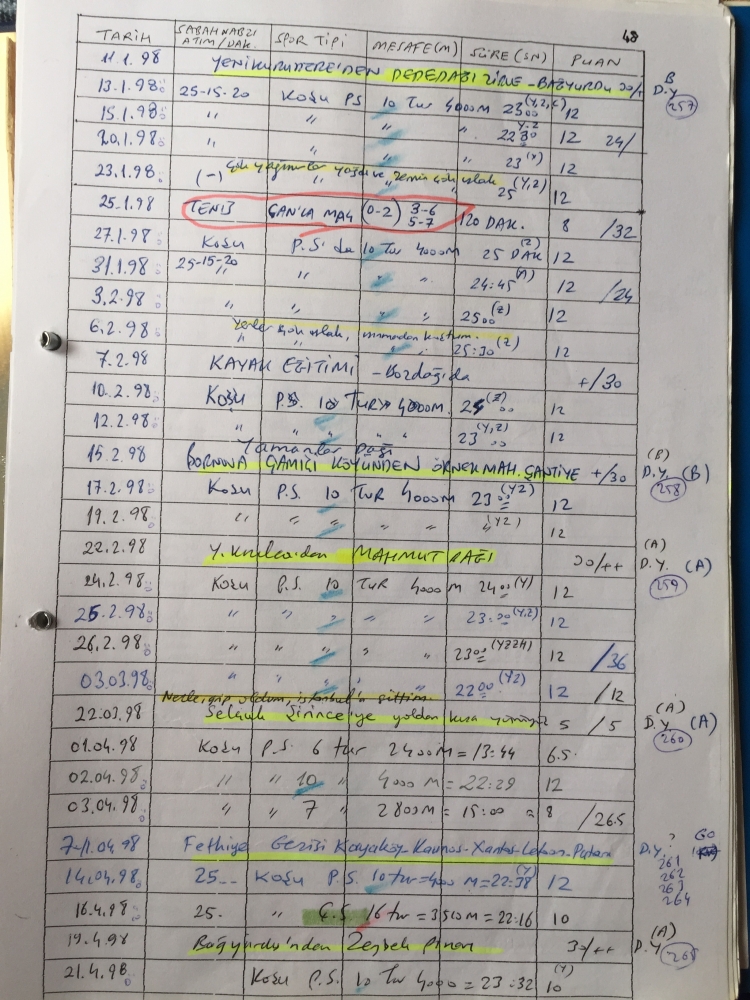 48
TARİH SABAH NABZI ATIM/DAK. SPOR TİPİ MESAFE(M) SÜRE (SN) PUAN
11.1.98 YENİKURUDERE'DEN DEDEDAĞI ZİRVE - BAĞYURDU 30/+ B D.Y 257
13.1.98 25-15-20 KOŞU PS 10 TUR 4000M 23 00 (Y,Z,L) 12
15.1.98 " " " " 22 30 Y.Z 12 24/
20.1.98 " " " " 23 (Y) 12
23.1.98 (-) Çok yağmurlar yağdı ve zemin çok ıslak " " 25 (Y,Z) 12
25.1.98 TENİS CAN'LA MAÇ (0-2) 3-6 5-7 120 DAK. 8 /32
27.1.98 KOŞU P.S. da 10 TUR 4000M 25 DAK (Z) 12
31.1.98 25-15-20 " " " " 24:45 (A) 12 /24
3.2.98 " " " " 25 00 (Z) 12
6.2.98 Yerler çok ıslak, " " 25:30 (Z) 12
7.2.98 KAYAK EĞİTİMİ - Bozdağıda +/30
10.2.98 KOŞU P.S. 10 TUR 4000M. 25 00 (Z) 12
12.2.98 " " " " 23 00 (Y,Z) 12
Yamanlar Dağı
15.2.98 BORNOVA ÇAMİÇİ KÖYÜNDEN ÖRNEK MAH. ŞANTİYE +/30 (B) D.Y. (B) 258
17.2.98 KOŞU P.S. 10 TUR 4000M 23 00 (YZ) 12
19.2.98 " " " " " " (YZ) 12
22.2.98 MAHMUT DAĞI 30/++ (A) D.Y. (A) 259
24.2.98 KOŞU P.S. 10 TUR 4000 M 24 00 (Y) 12
25.2.98 " " " " " 23:00 (Y,Z) 12
26.2.98 " " " " " 23 00 (YZZH) 12 /36
03.03.98 " " " " 22 00 (YZ) 12 /12
Nezle, grip oldum, istanbul'a gittim.
22.03.98 Selçuk Şirince'ye yoldan kısa yürüyüş 5 /5 (A) D.Y (A) 260
01.04.98 KOŞU P.S. 6 tur 2400M = 13:44 6.5
02.04.98 " " 10 " 4000 M = 22:29 12
03.04.98 " " 7 " 2800M = 15:00 = 8 /26.5
7-11.04.98 Fethiye Gezisi Kayaköy Kaunos-Xantos-Letoon-Patara D.Y. ? 60 261 262 263 264
14.04.98 25-- KOŞU P.S. 10 tur = 4000 M = 22:38 (Y) 12
16.4.98 25. " Ç.S. 16 tur = 3510M = 22:16 10
19.4.98 Bağyurdu'ndan Zeybek Pınarı 30/++ (A) D.Y 265
21.4.98 KOŞU P.S. 10 Tur 4000 = 23:32 (Y) 10